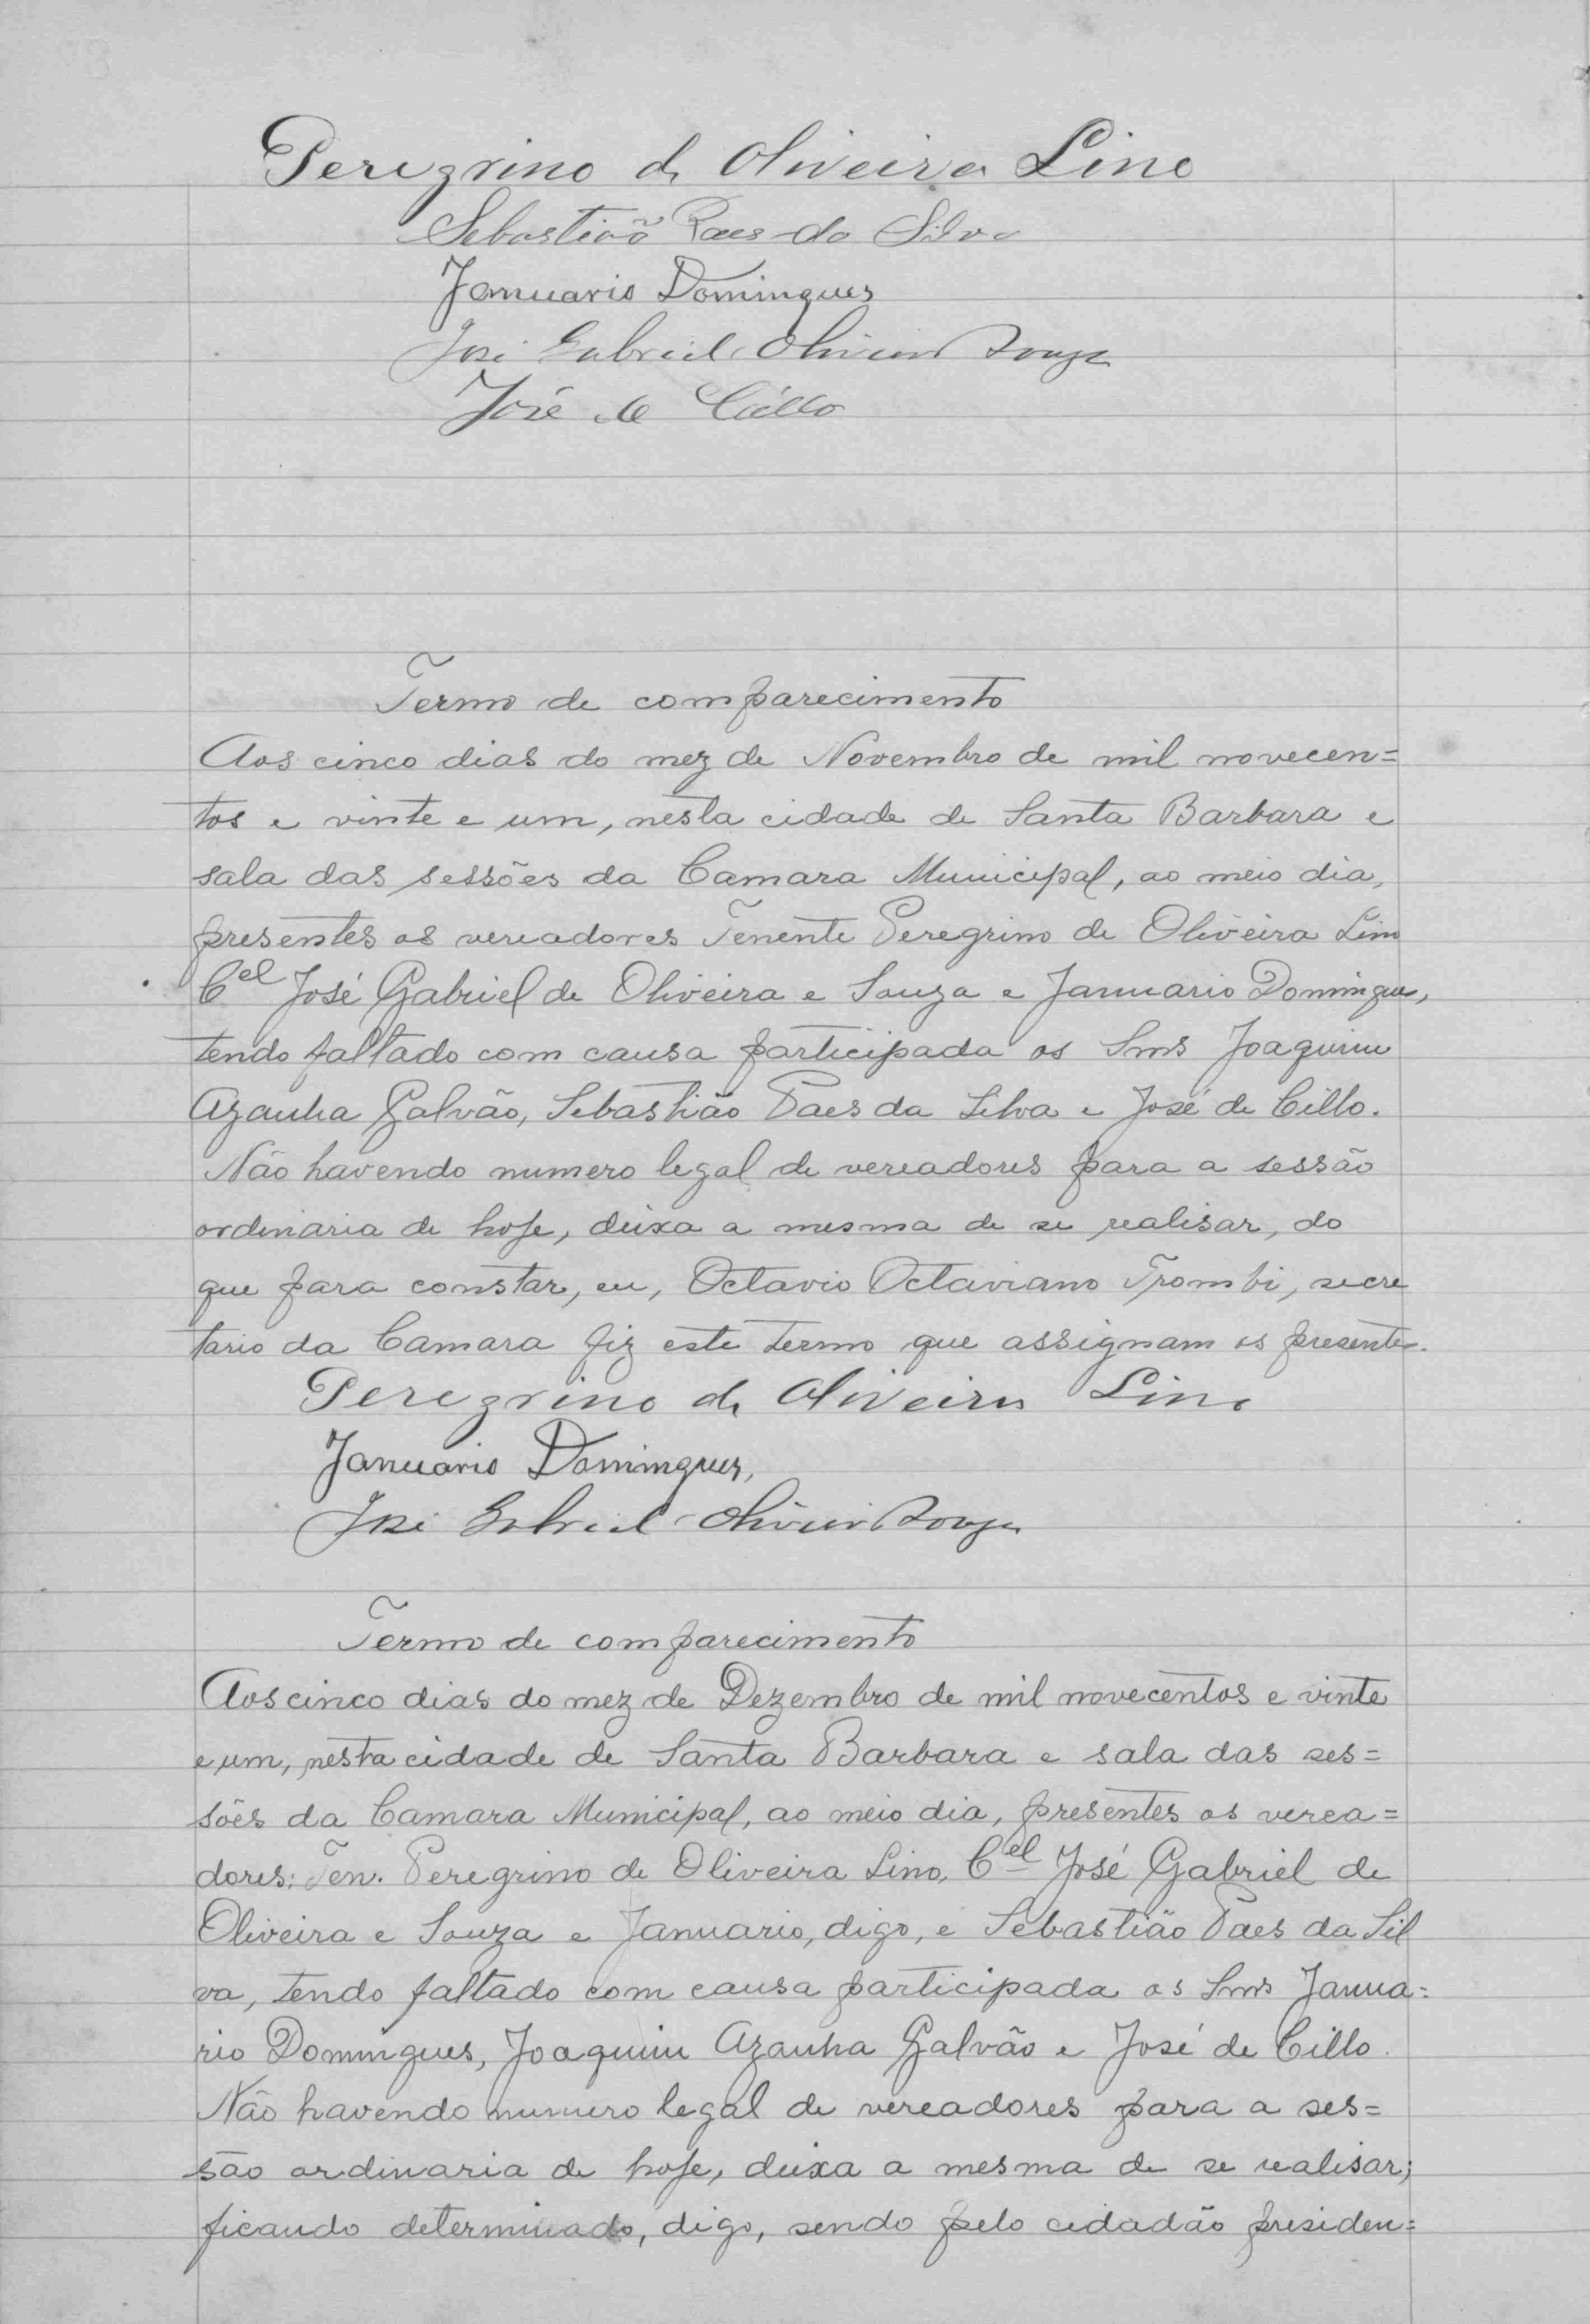 Peregrino de Oliveira Lino
Sebastião Paes da Silva
Januario Domingues
José Gabriel Oliveira Souza
José de Cillo
Termo de comparecimento
Aos cinco dias do mez de Novembro de mil novecen=
tos e vinte e um, nesta cidade de Santa Barbara e
sala das sessões da Camara Municipal, ao meio dia,
presentes os vereadores Tenente Peregrino de Oliveira Lino
Cel José Gabriel de Oliveira e Souza e Januario Domingues,
tendo faltado com causa participada os Snrs Joaquim
Azanha Galvão, Sebastião Paes da Silva e José de Cillo.
Não havendo numero legal de vereadores para a sessão
ordinaria de hoje, deixa a mesma de se realisar, do
que para constar, eu, Octavio Octaviano Trombi, secre
tario da Camara fiz este termo que assignam os presentes.
Peregrino de Oliveira Lino
Januario Domingues,
José Gabriel Oliveira Souza
Termo de comparecimento
Aos cinco dias do mez de Dezembro de mil novecentos e vinte
e um, nesta cidade de Santa Barbara e sala das ses=
sões da Camara Municipal, ao meio dia, presentes os verea=
dores: Ten. Peregrino de Oliveira Lino, Cel José Gabriel de
Oliveira e Souza e Januario, digo, e Sebastião Paes da Sil
va, tendo faltado com causa participada os Snrs Janua=
rio Domingues, Joaquim Azanha Galvão e José de Cillo.
Não havendo numero legal de vereadores para a ses=
são ordinaria de hoje, deixa a mesma de se realisar;
ficando determinado, digo, sendo pelo cidadão presiden=